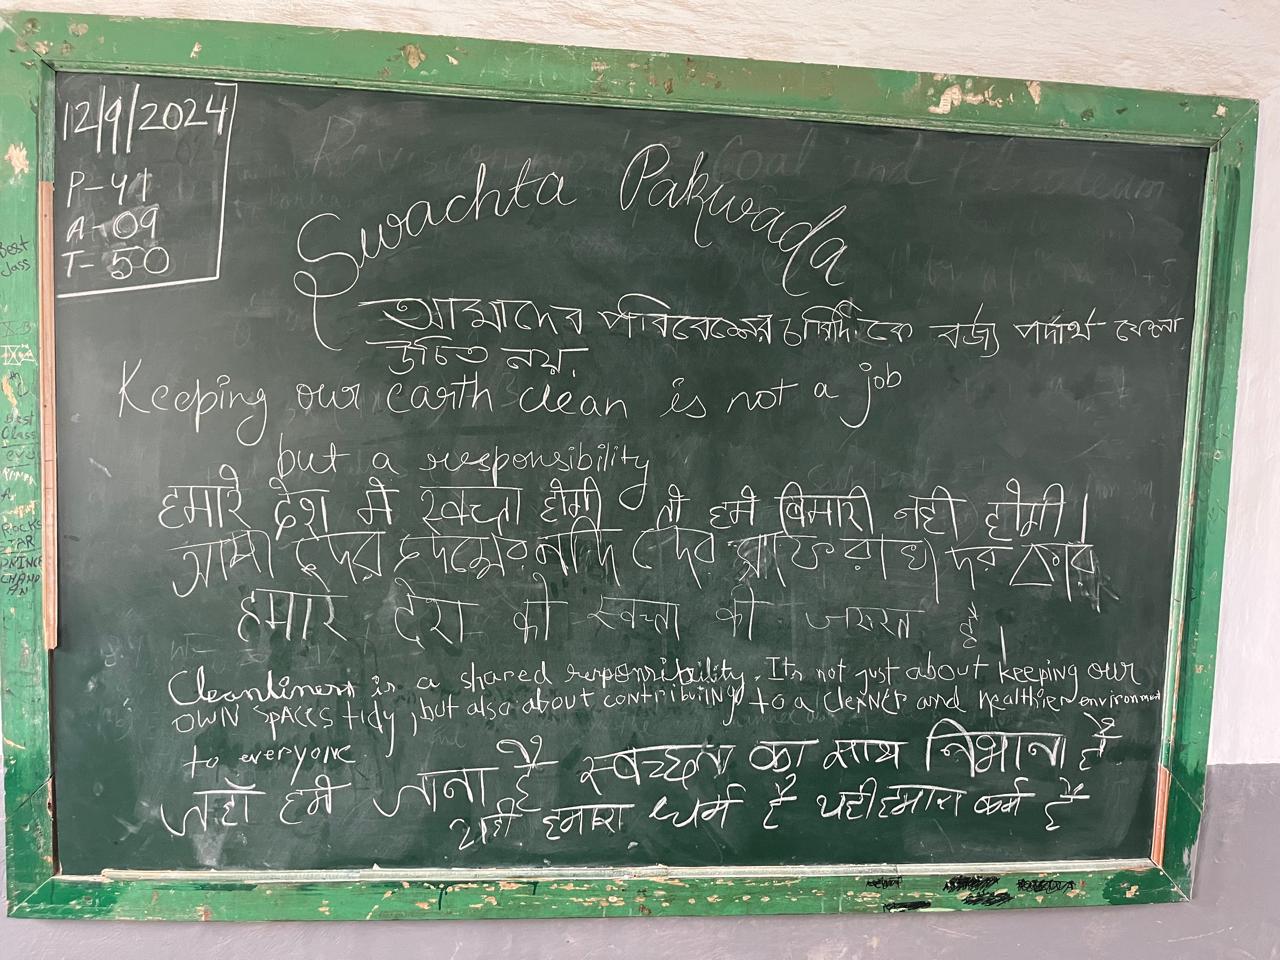 12/9/2024
P-41
A-09
T-50
Swachta Pakwada
আমাদের পরিবেশের চারিদিকে বর্জ্য পদার্থ ফেলা
উচিত নয়.
Keeping our earth clean is not a job
but a responsibility
हमारे देश मे स्वच्ता होगी तो हमे बिमारी नही होगी।
हमारे देश को स्वच्ता की जरुरत है।
Cleanliness is a shared responsibility. It's not just about keeping our
OWN SPACES tidy, but also about contributing to a cleaner and healthier environment
to everyone
जहाँ हमे जाना है स्वच्छता का साथ निभाना है
यही हमारा धर्म है यही हमारा कर्म है
Best
class
Best
Class
ever
ROCKS
TAR
PRINCE
CHAND
AN